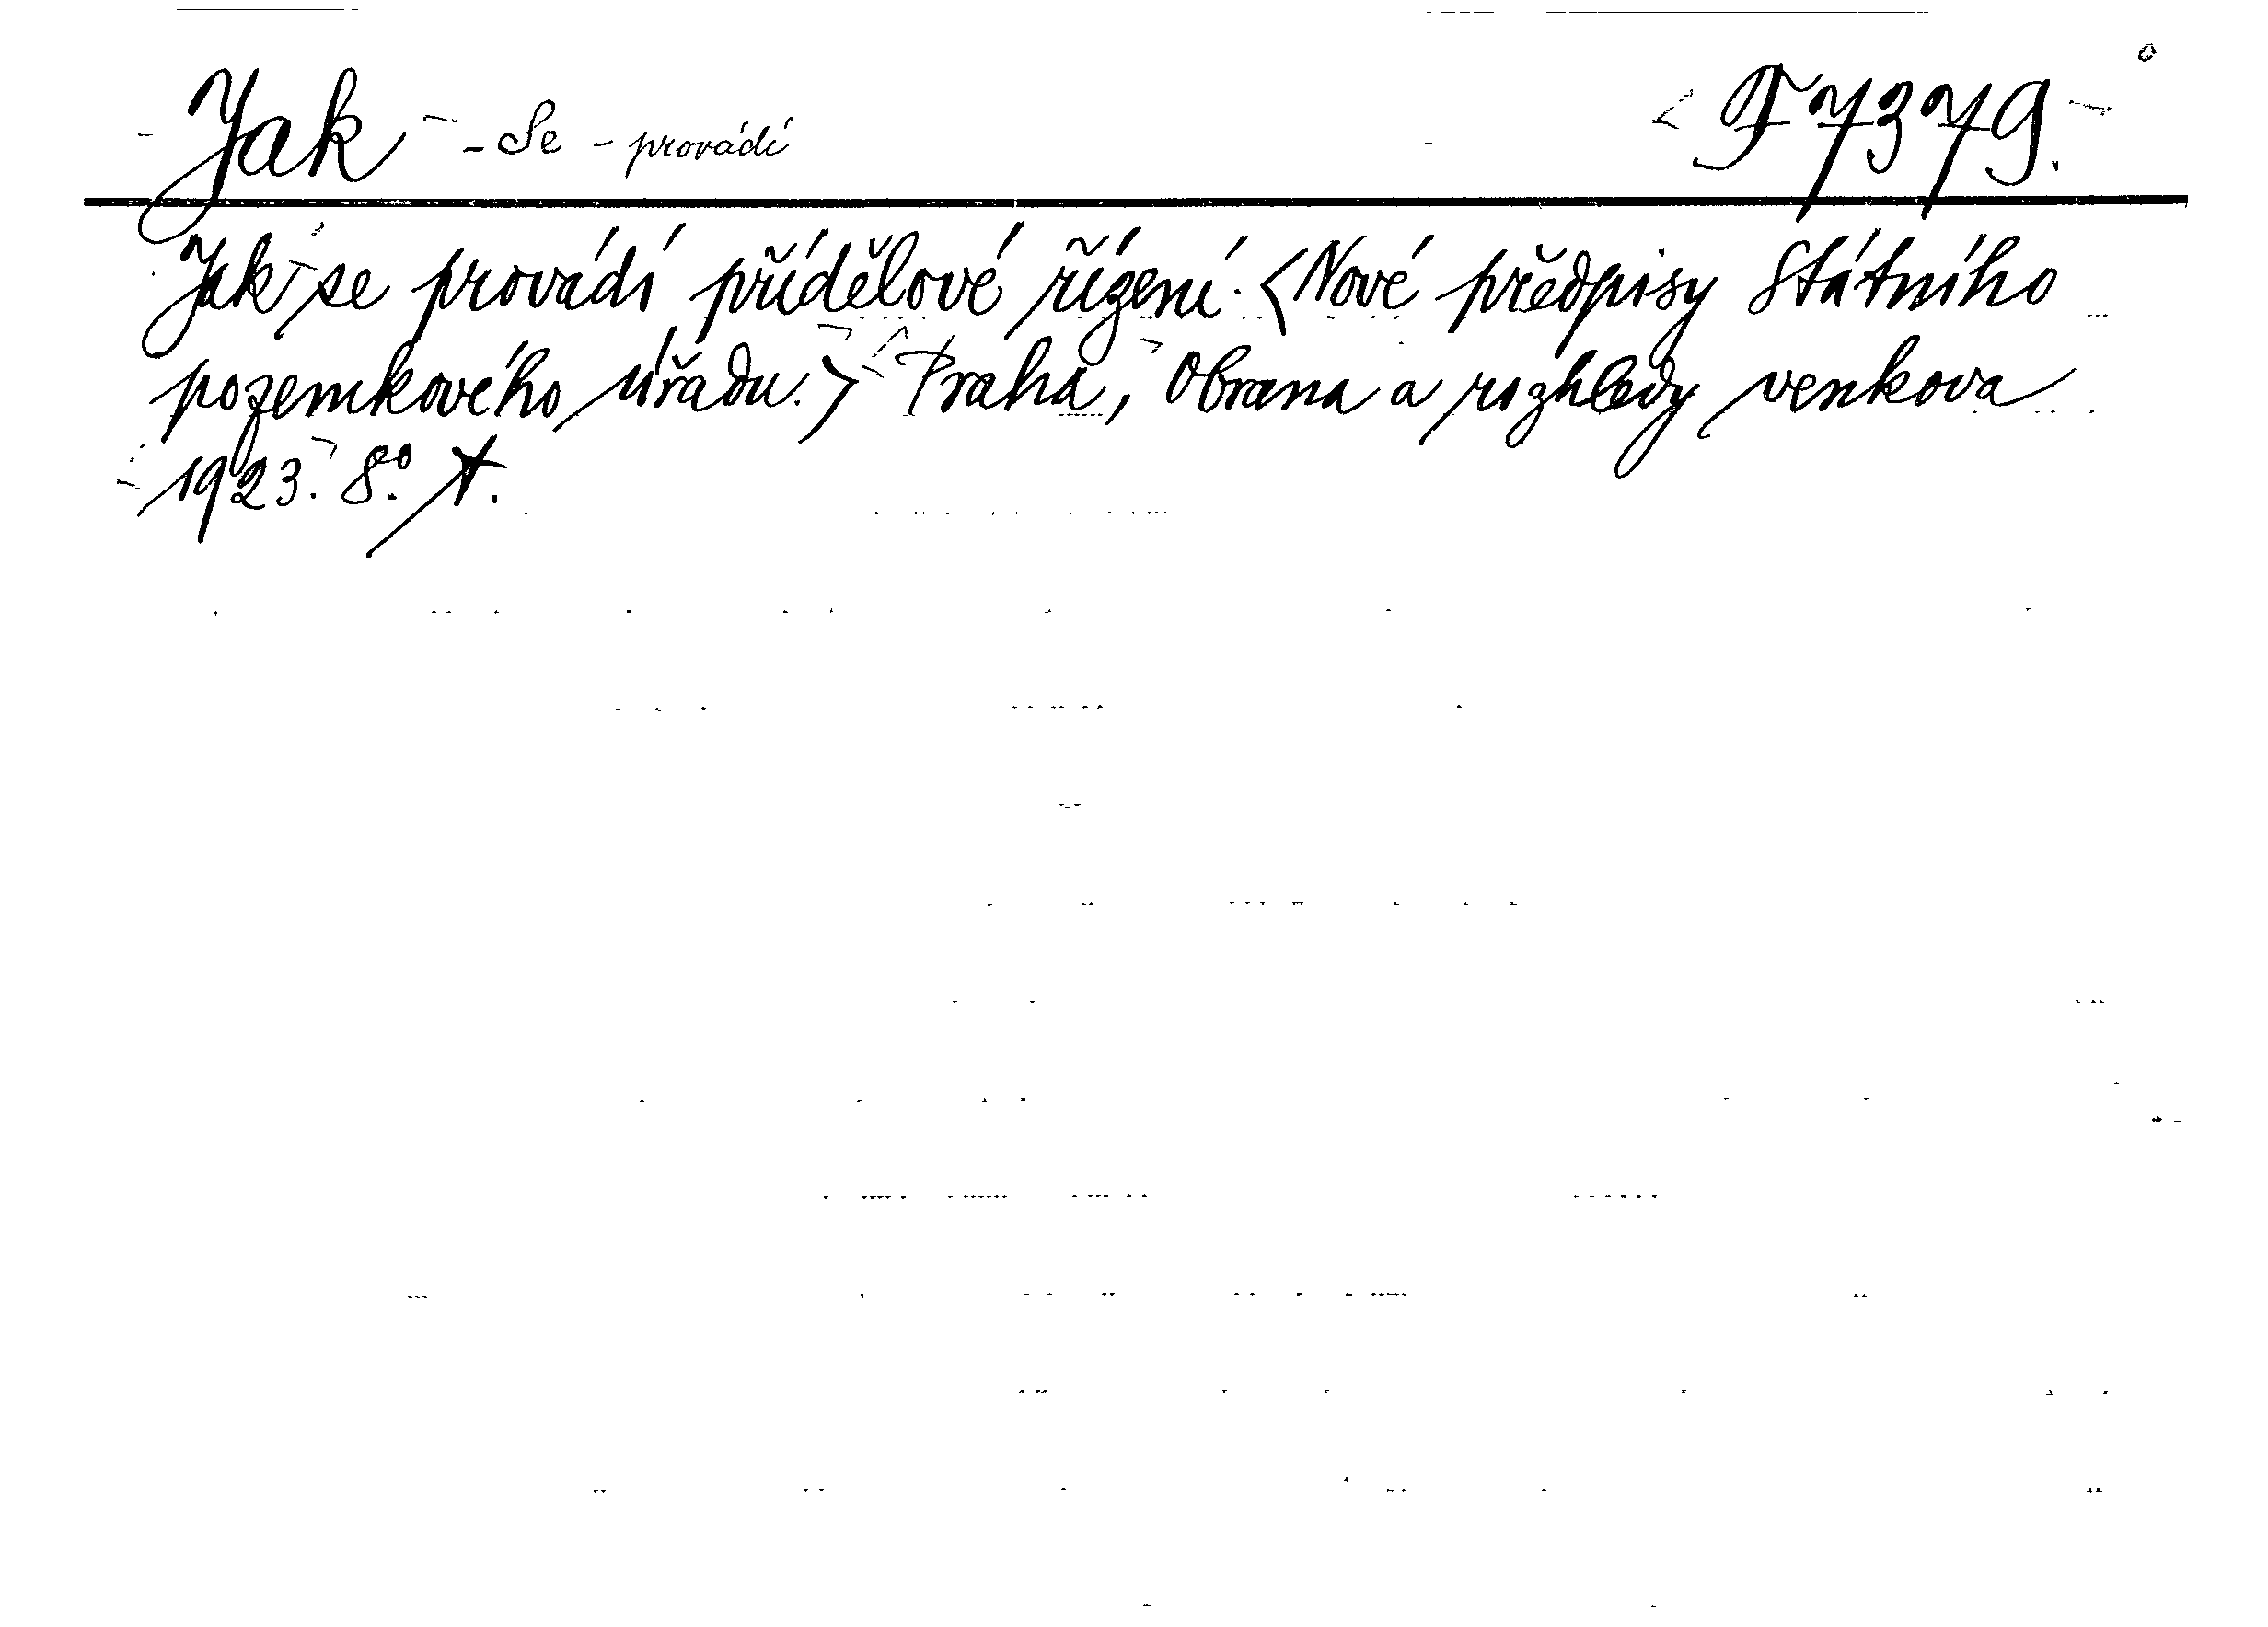 Jak - Se - provádí F 7379.
Jak se provádí přídělové řízení. <Nové předpisy Státního
pozemkového úřadu.> Praha, Obrana a rozhledy venkova
1923. 8°.